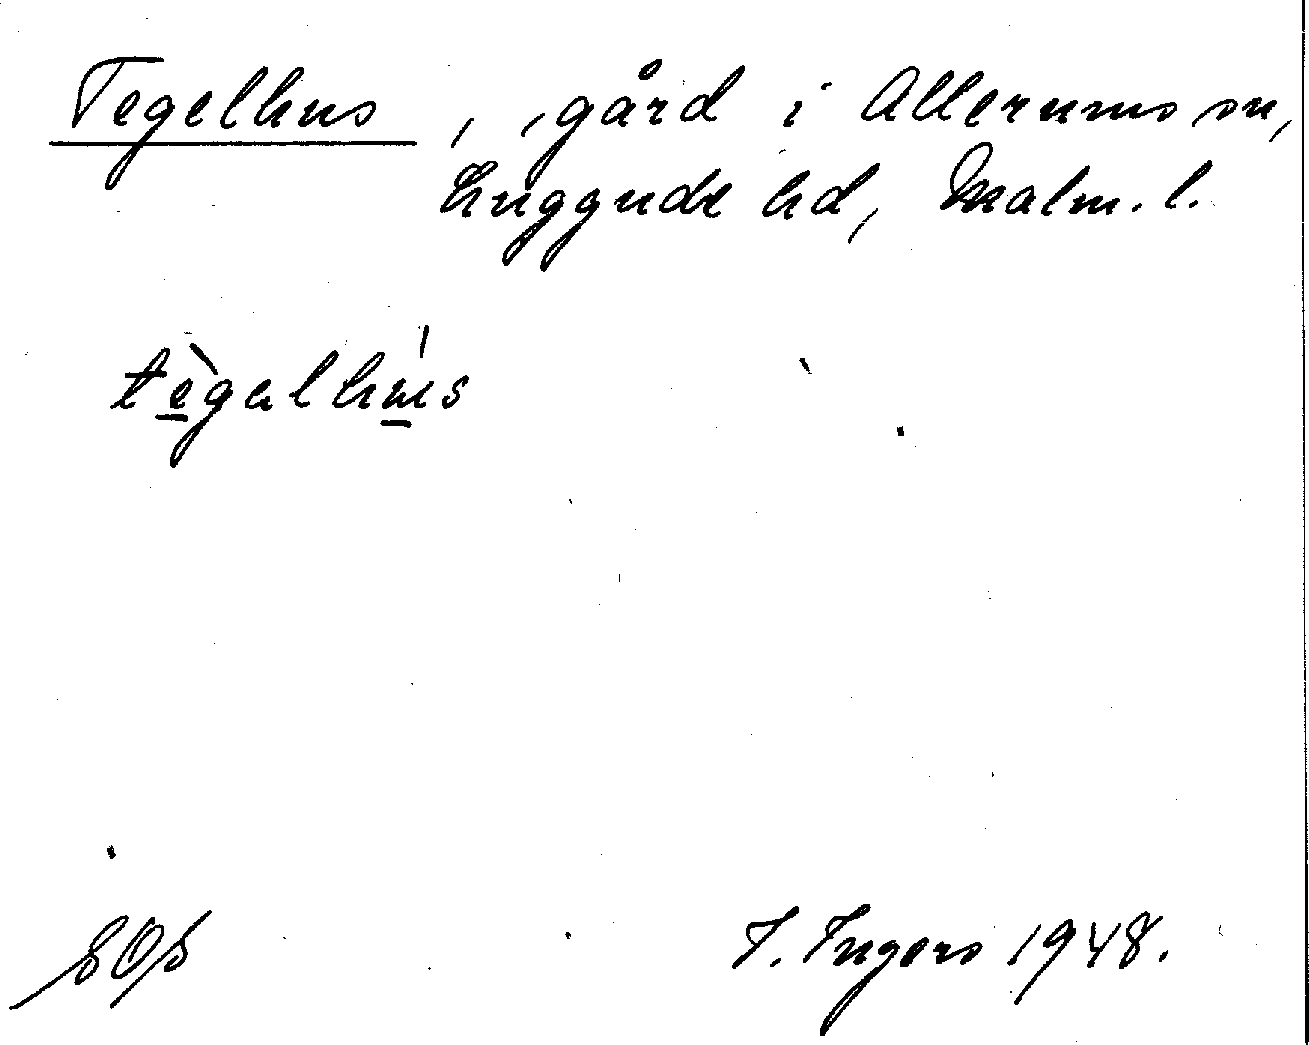 Tegelhus, , gård i Allerums sn,
Luggude hd, Malm. l.
tegalhus
I. Ingers 1948.